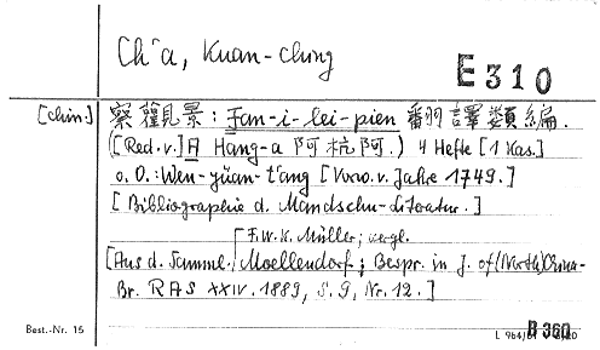 Ch'a, Kuan-ching
E 310
[chin.] 察觀景: Fan-i-lei-pien 翻譯類編.
([Red. v.] A Hang-a 阿杭阿.) 4 Hefte [1 Kas.]
o. O.: Wen-yüan-t'ang [Vorw. v. Jahre 1749.]
[Bibliographie d. Mandschu-Literatur.]
[Aus d. Samml. [F. W. K. Müller; vergl.
Moellendorf; Bespr. in J. of (North) China-
Br. RAS XXIV. 1889, S. 9, Nr. 12.]
Best.-Nr. 15
B 360